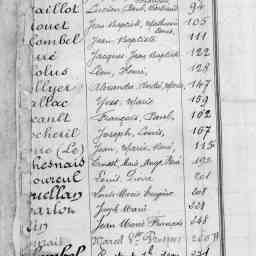 aillot Lucien Paul, Bertrand 94
ouet Jean Baptiste, Mathurin Louis, 105
ombel Jean Baptiste 111
ué Jacques Jean Baptiste 122
olus Léon, Henri, 128
llyer Alexandre André, Marie, 147
allac Yves, Marie 159
cault François, Paul, 162
ocheril Joseph, Louis, 167
uo (Le) Jean, Marie, René, 115
hesnais Ernest, Marie Ange, René 192
oureul Louis, Pierre 201
uellan Louis Marie Eugène 208
arlon Joseph Marie 228
in Jean Marie François 248
Marcel 260
ombel 231